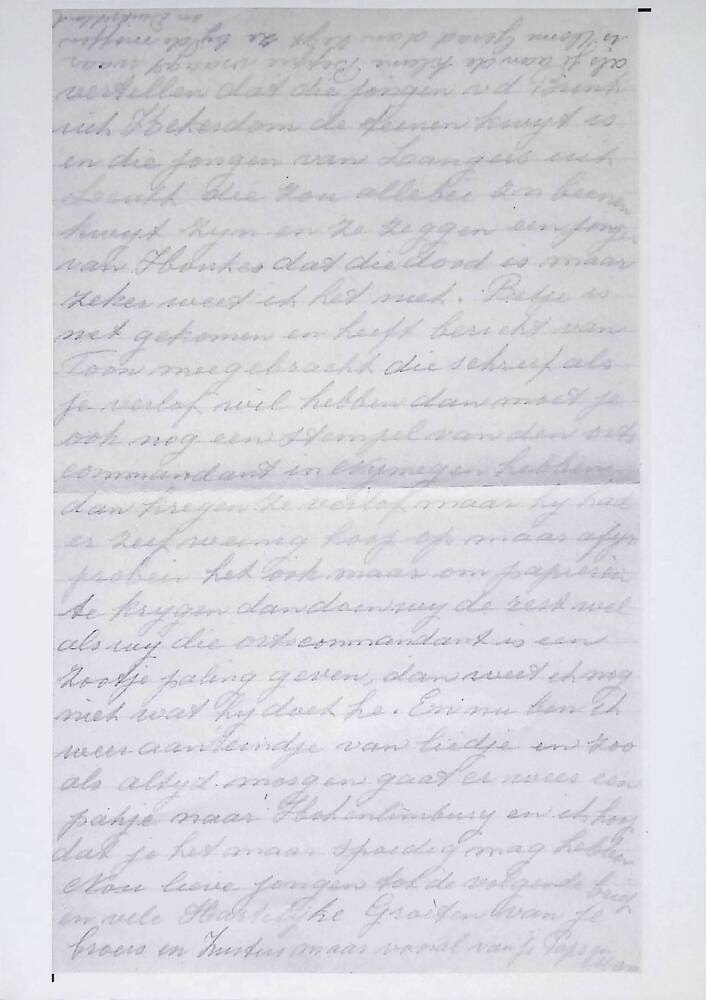 vertellen dat die jongen vd Brink
uit Kekerdom de teenen kwyt is
en die jongen van Langers uit
Leuth die zou allebei zyn beenen
kwyt zyn en ze zeggen een jongen
van Honkes dat die dood is maar
zeker weet ik het niet. Betje is
net gekomen en heeft bericht van
Toon meegebracht die schreef als
je verlof wil hebben dan moet je
ook nog een stempel van den orts
commandant in Nymegen hebben
dan kregen ze verlof maar hy had
er zelf weinig hoop op maar afyn
probeer het ook maar om papieren
te krygen dan doen wy de rest wel
als wy die ortscommandant is een
zootje paling geven, dan weet ik nog
niet wat hy doet he. En nu ben ik
weer aan eindje van liedje en zoo
als altyd morgen gaat er weer een
pakje naar Hohenlimburg en ik hoop
dat je het maar spoedig mag hebben
Nou lieve jongen tot de volgende brief
en vele Hartelyke Groeten van je
broers en zusters maar vooral van je Paps en Mam
als je aan de kleine Beppie vraagt waar
is Oome Gerad dan zegt ze by de moffen
in Duitschland